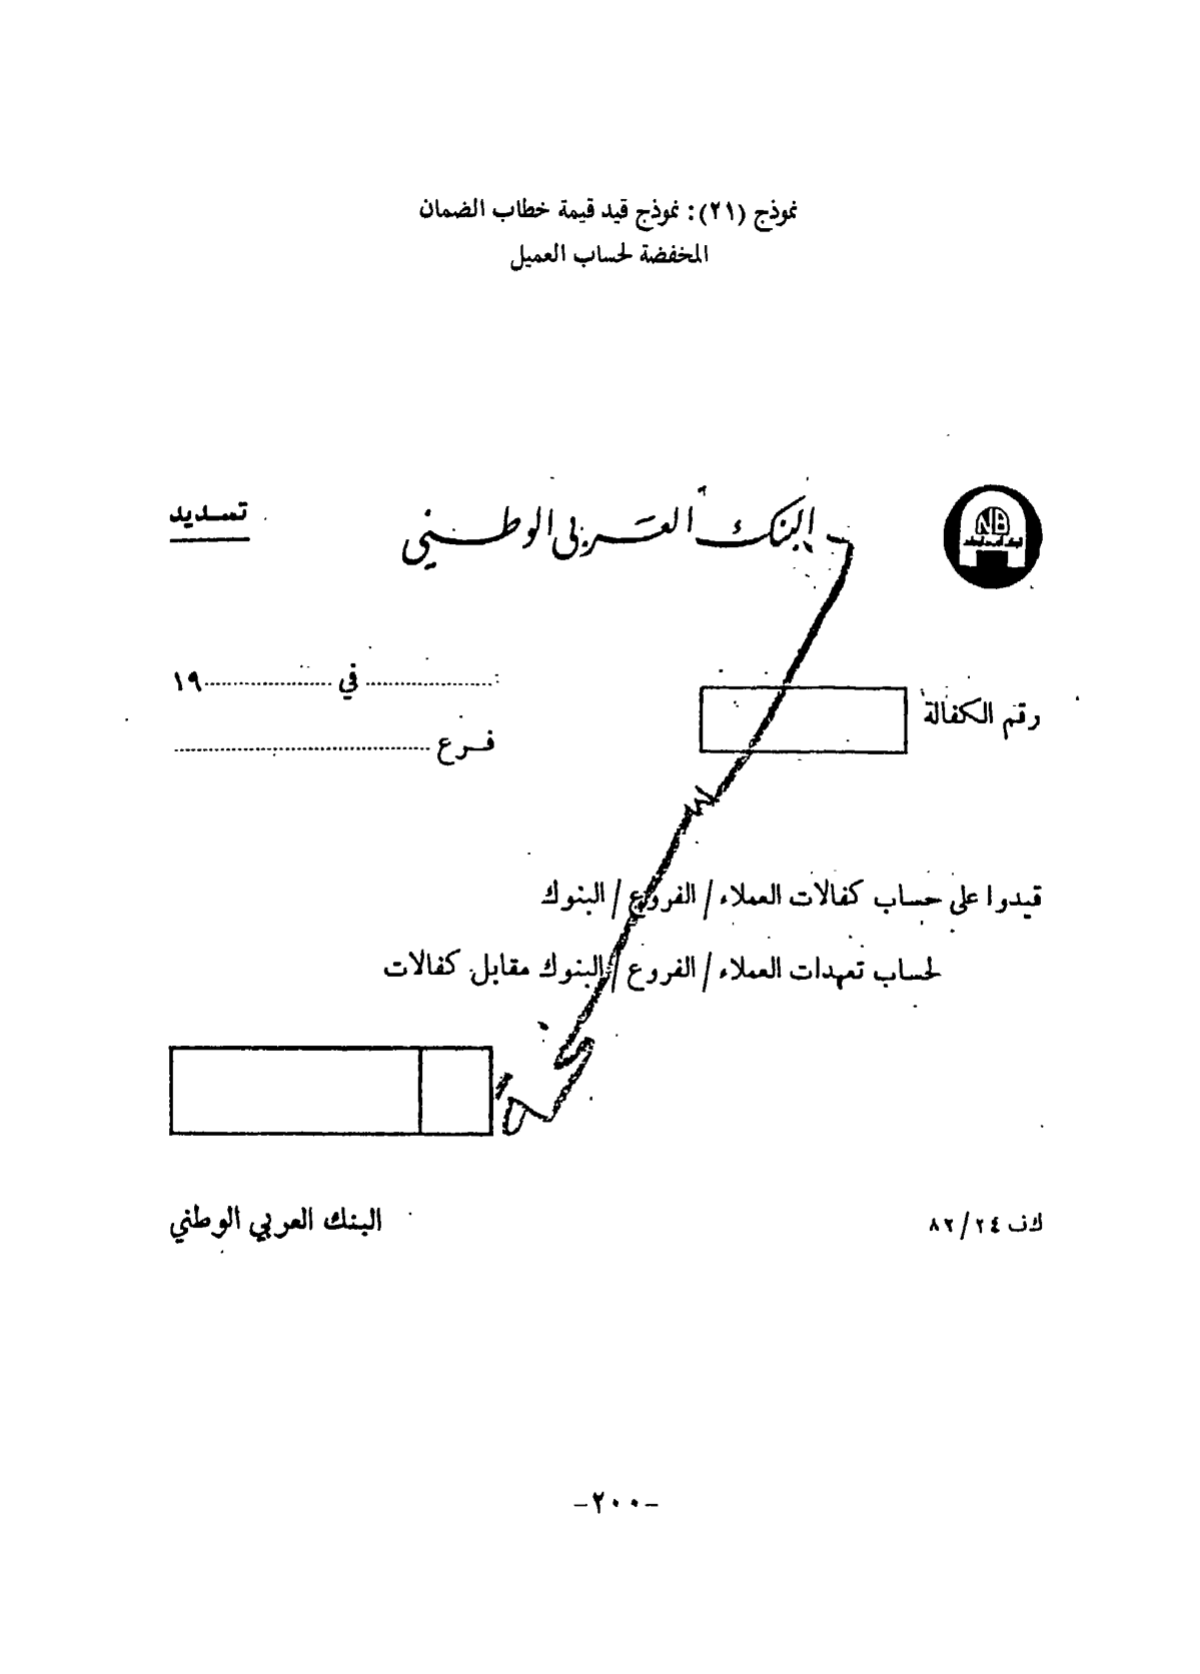 نموذج (٢١): نموذج قيد قيمة خطاب الضمان
المخفضة لحساب العميل
البنك العربي الوطني
تسديد
NB
رقم الكفالة
.................... في .................... ١٩
فرع ........................................
قيدوا على حساب كفالات العملاء / الفروع / البنوك
لحساب تعهدات العملاء / الفروع / البنوك مقابل كفالات
ك ف ٨٢/٢٤
البنك العربي الوطني
-٢٠٠-